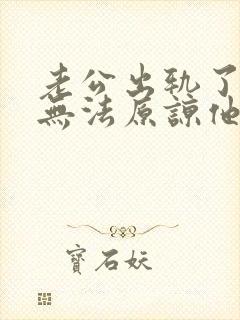 老公出轨了
無法原諒他
寶石妖